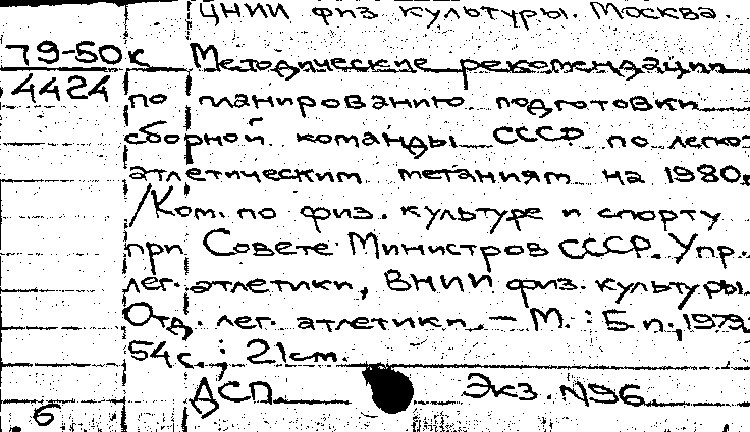 ЦНИИ физ культуры. Москва.
79-50к Методические рекомендации
4424 по планированию подготовки
сборной команды СССР по легко-
атлетическим метаниям на 1980.
/Ком. по физ. культуре и спорту
при Совете Министров СССР. Упр.
лег. атлетики, ВНИИ физ. культуры.
Отд. лег. атлетики. — М. : Б.и., 1979
54 с. ; 21 см.
ДСП. Экз. №96.
6